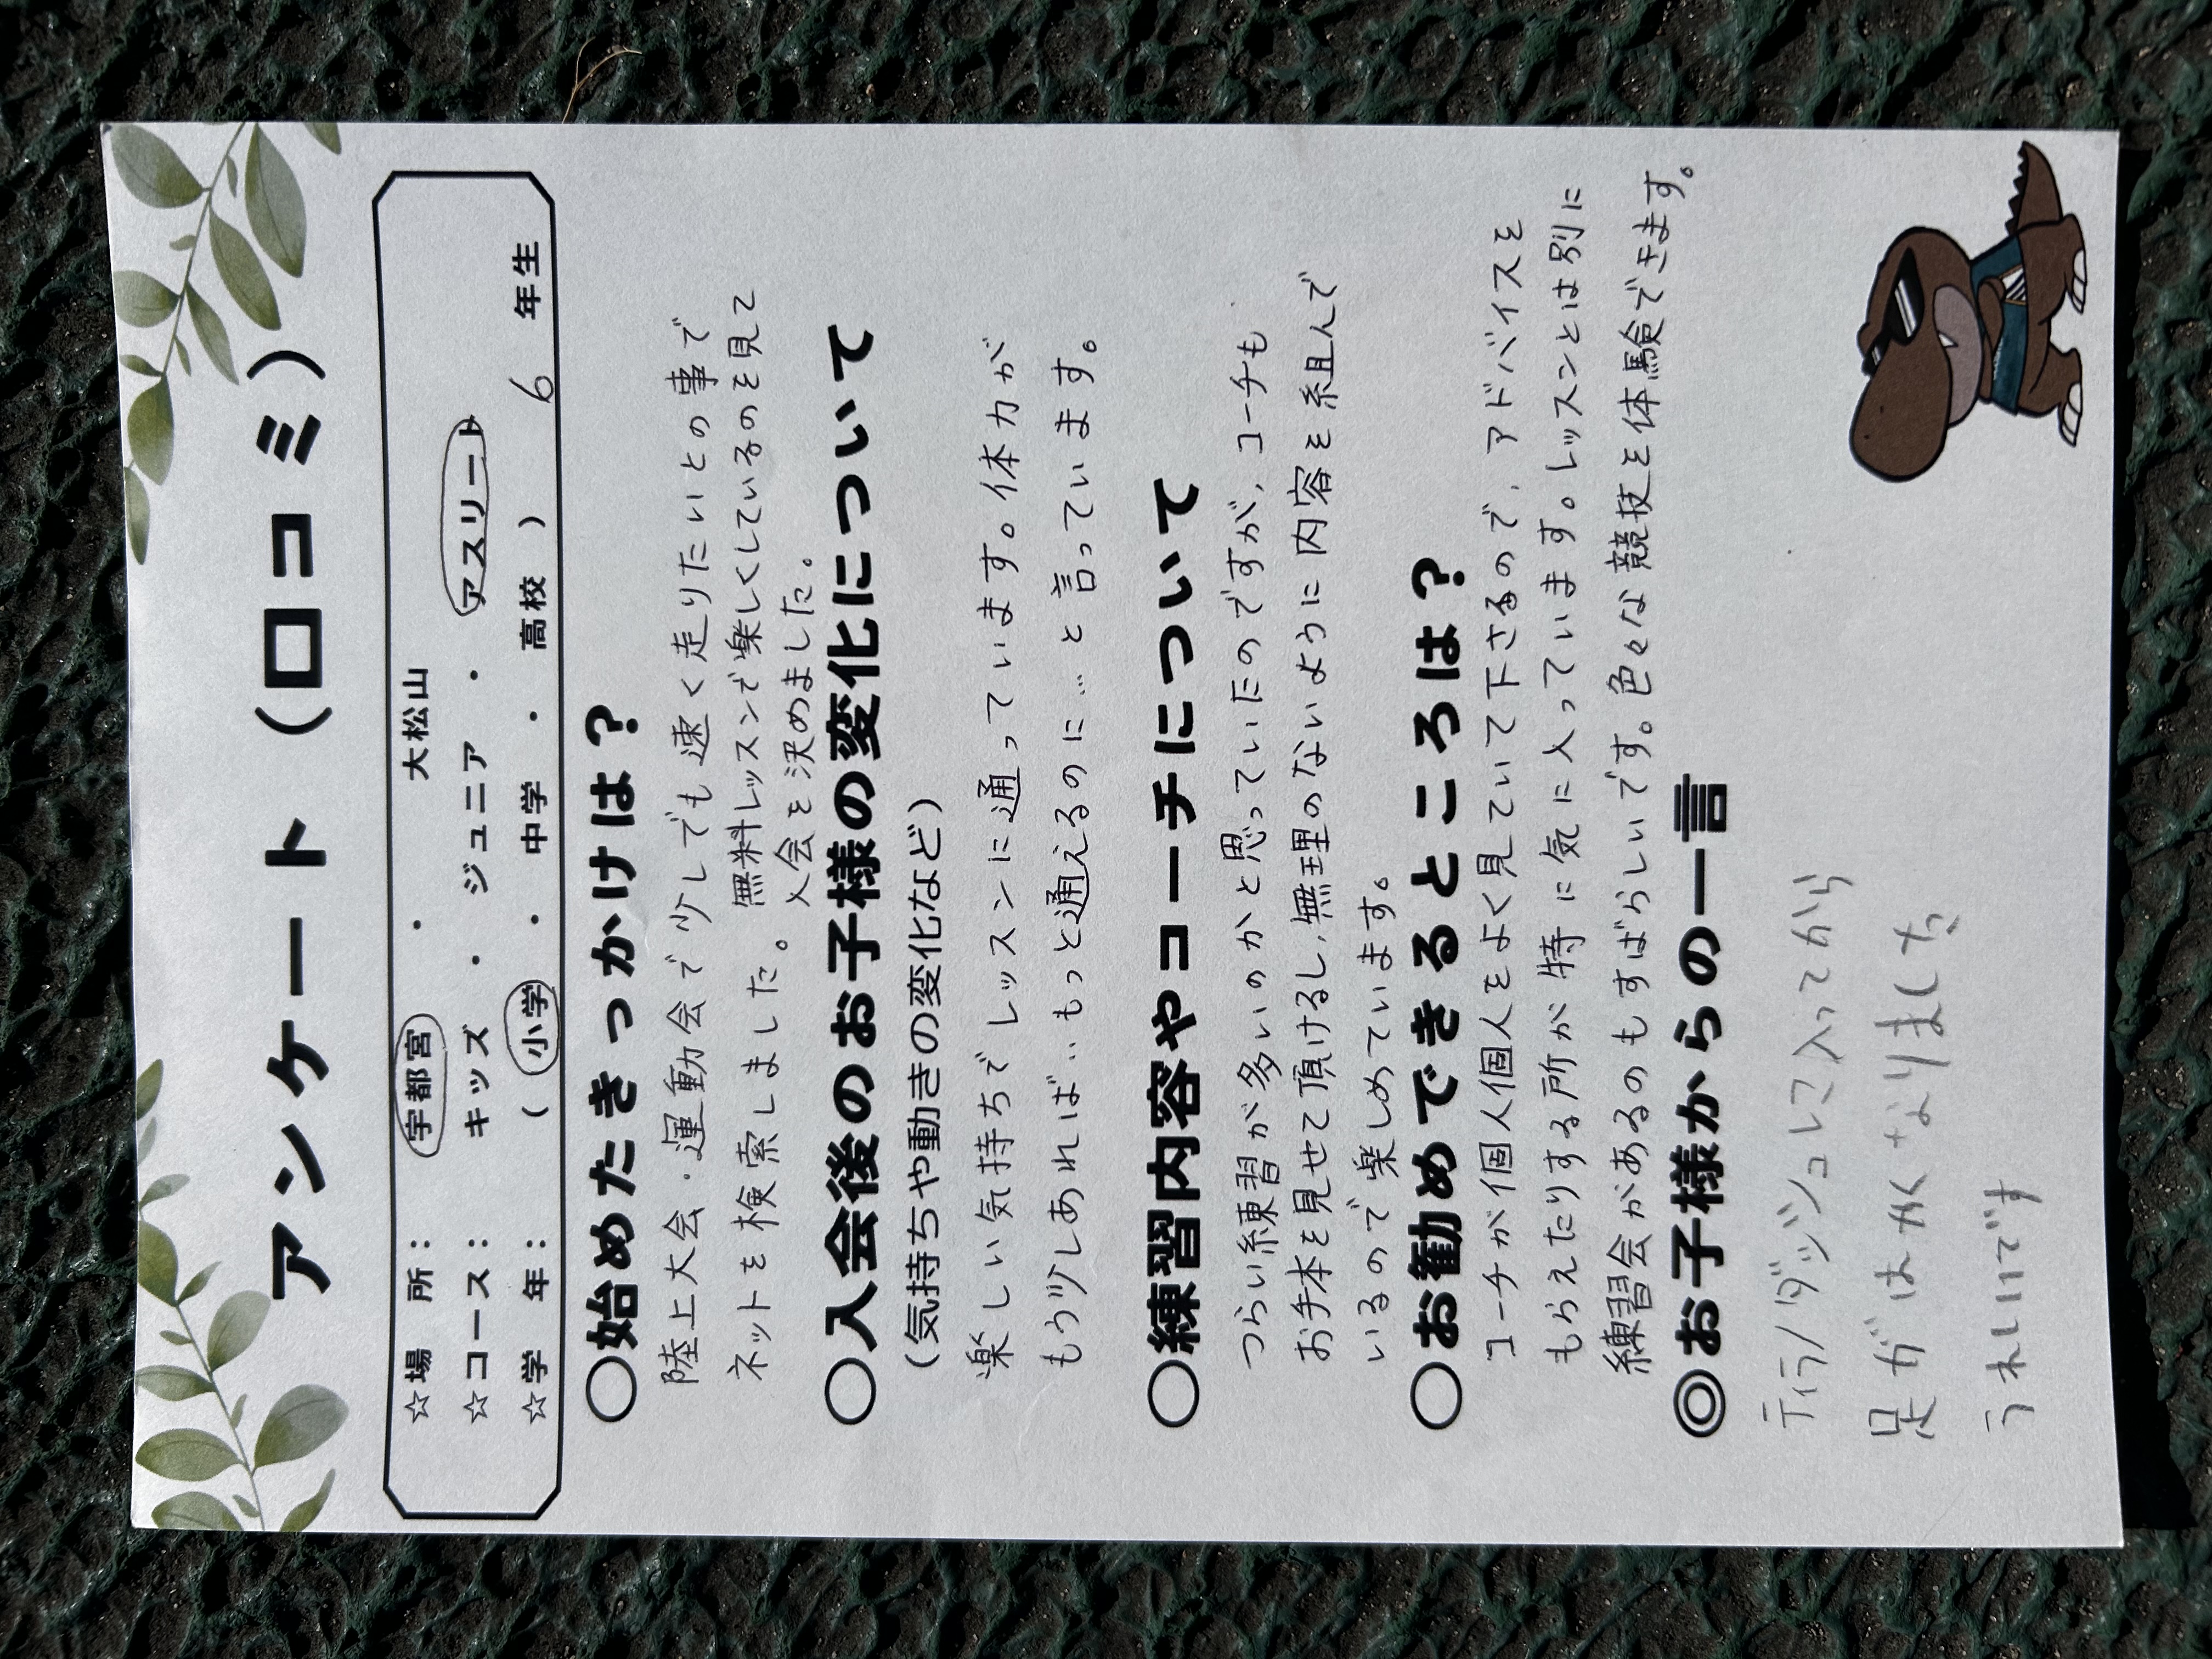 アンケート（口コミ）
☆場　所：　宇都宮　・　大松山
☆コース：　キッズ　・　ジュニア　・　アスリート
☆学　年：　（　小学　・　中学　・　高校　）　6　年生
○始めたきっかけは？
陸上大会・運動会で少しでも速く走りたいとの事で
ネットを検索しました。無料レッスンで楽しくしているのを見て
入会を決めました。
○入会後のお子様の変化について
（気持ちや動きの変化など）
楽しい気持ちでレッスンに通っています。体力が
もう少しあれば‥もっと通えるのに…と言っています。
○練習内容やコーチについて
つらい練習が多いのかと思っていたのですが、コーチも
お手本を見せて頂けるし、無理のないように内容を組んで
いるので楽しめています。
○お勧めできるところは？
コーチが個人個人をよく見ていて下さるので、アドバイスを
もらえたりする所が特に気に入っています。レッスンとは別に
練習会があるのもすばらしいです。色々な競技を体験できます。
◎お子様からの一言
ティラノダッシュに入ってから
足がはやくなりました
うれしいです